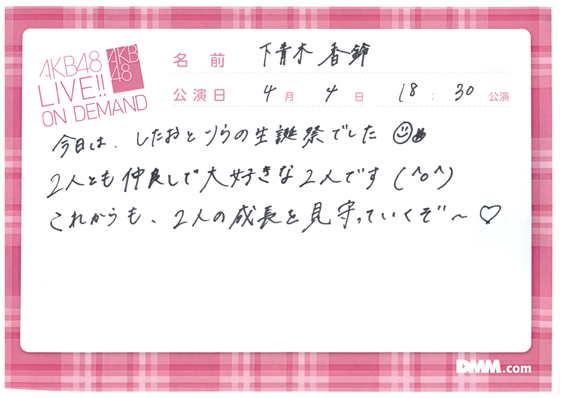 AKB48
LIVE!!
ON DEMAND
AKB
48
名前 下青木 香鈴
公演日 4月 4日 18:30 公演
今日は、したおとりらの生誕祭でした
2人とも仲良しで大好きな2人です(^o^)
これからも、2人の成長を見守っていくぞ〜♡
DMM.com